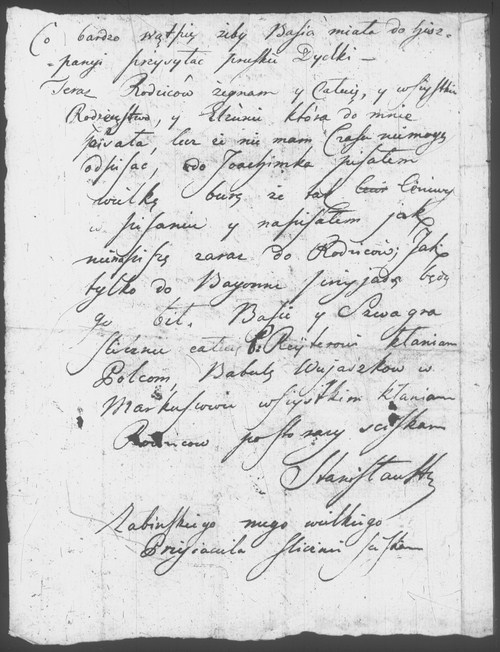 Co bardzo wątpię żeby Basia miała do hisz-
-panyi przyyiąć pruski
Teraz Rodziców żegnam y Całuię, y wszystkie
Rodzeństwo, y która do mnie
pisała, lecz że nie mam Czasu niemogę
odpisać, do Joachimka pisałem
wielką burę że tak leniwy
w pisaniu y napisałem jak
zaraz do Rodziców; Jak
tylko do Bayonni przyjadę będę
go bił. Basie y Szwagra
slicznie całuię P. Reyterowi kłaniam
Polcom, Babulę Wujaszków w
Markuszowie wszystkim kłaniam
Rodziców po sto razy sciskam
Stanisław
Żabinskiego mego wielkiego
Przyiaciela slicznie sciskam